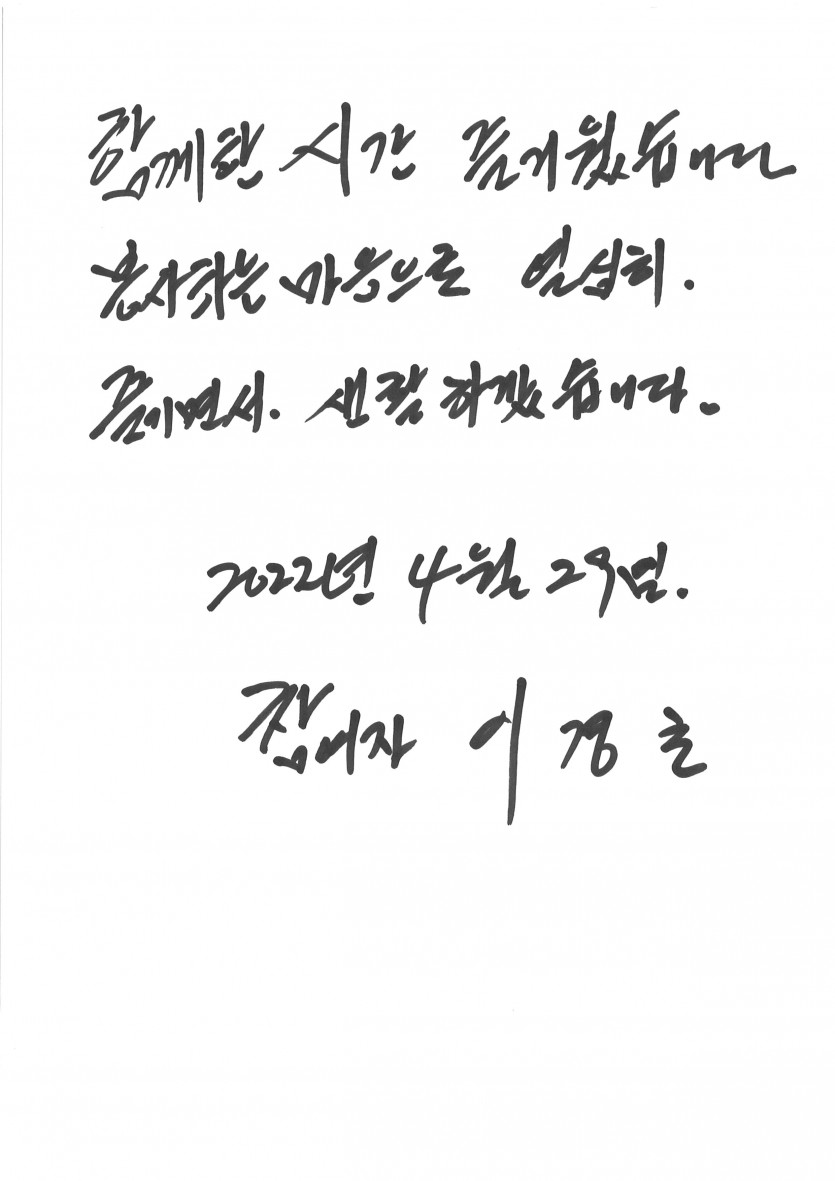 함께한 시간 즐거웠습니다
봉사하는 마음으로 열심히.
즐기면서. 생활 하겠습니다.
2022년 4월 29일.
참여자 이경